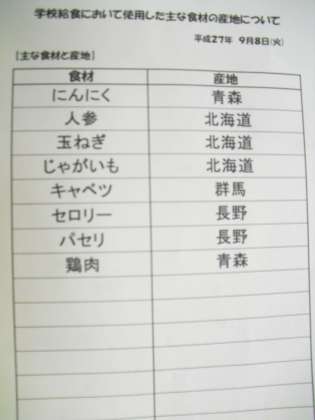 学校給食において使用した主な食材の産地について
平成27年 9月8日(火)
[主な食材と産地]
食材 産地
にんにく 青森
人参 北海道
玉ねぎ 北海道
じゃがいも 北海道
キャベツ 群馬
セロリー 長野
パセリ 長野
鶏肉 青森